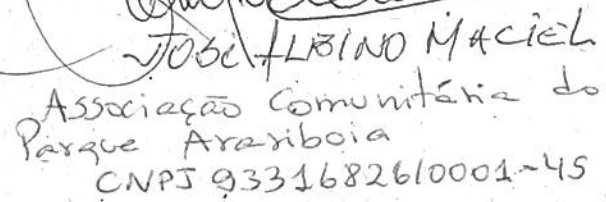 JOSÉ ALBINO MACIEL
Associação Comunitária do
Parque Arariboia
CNPJ 93316826/0001-45